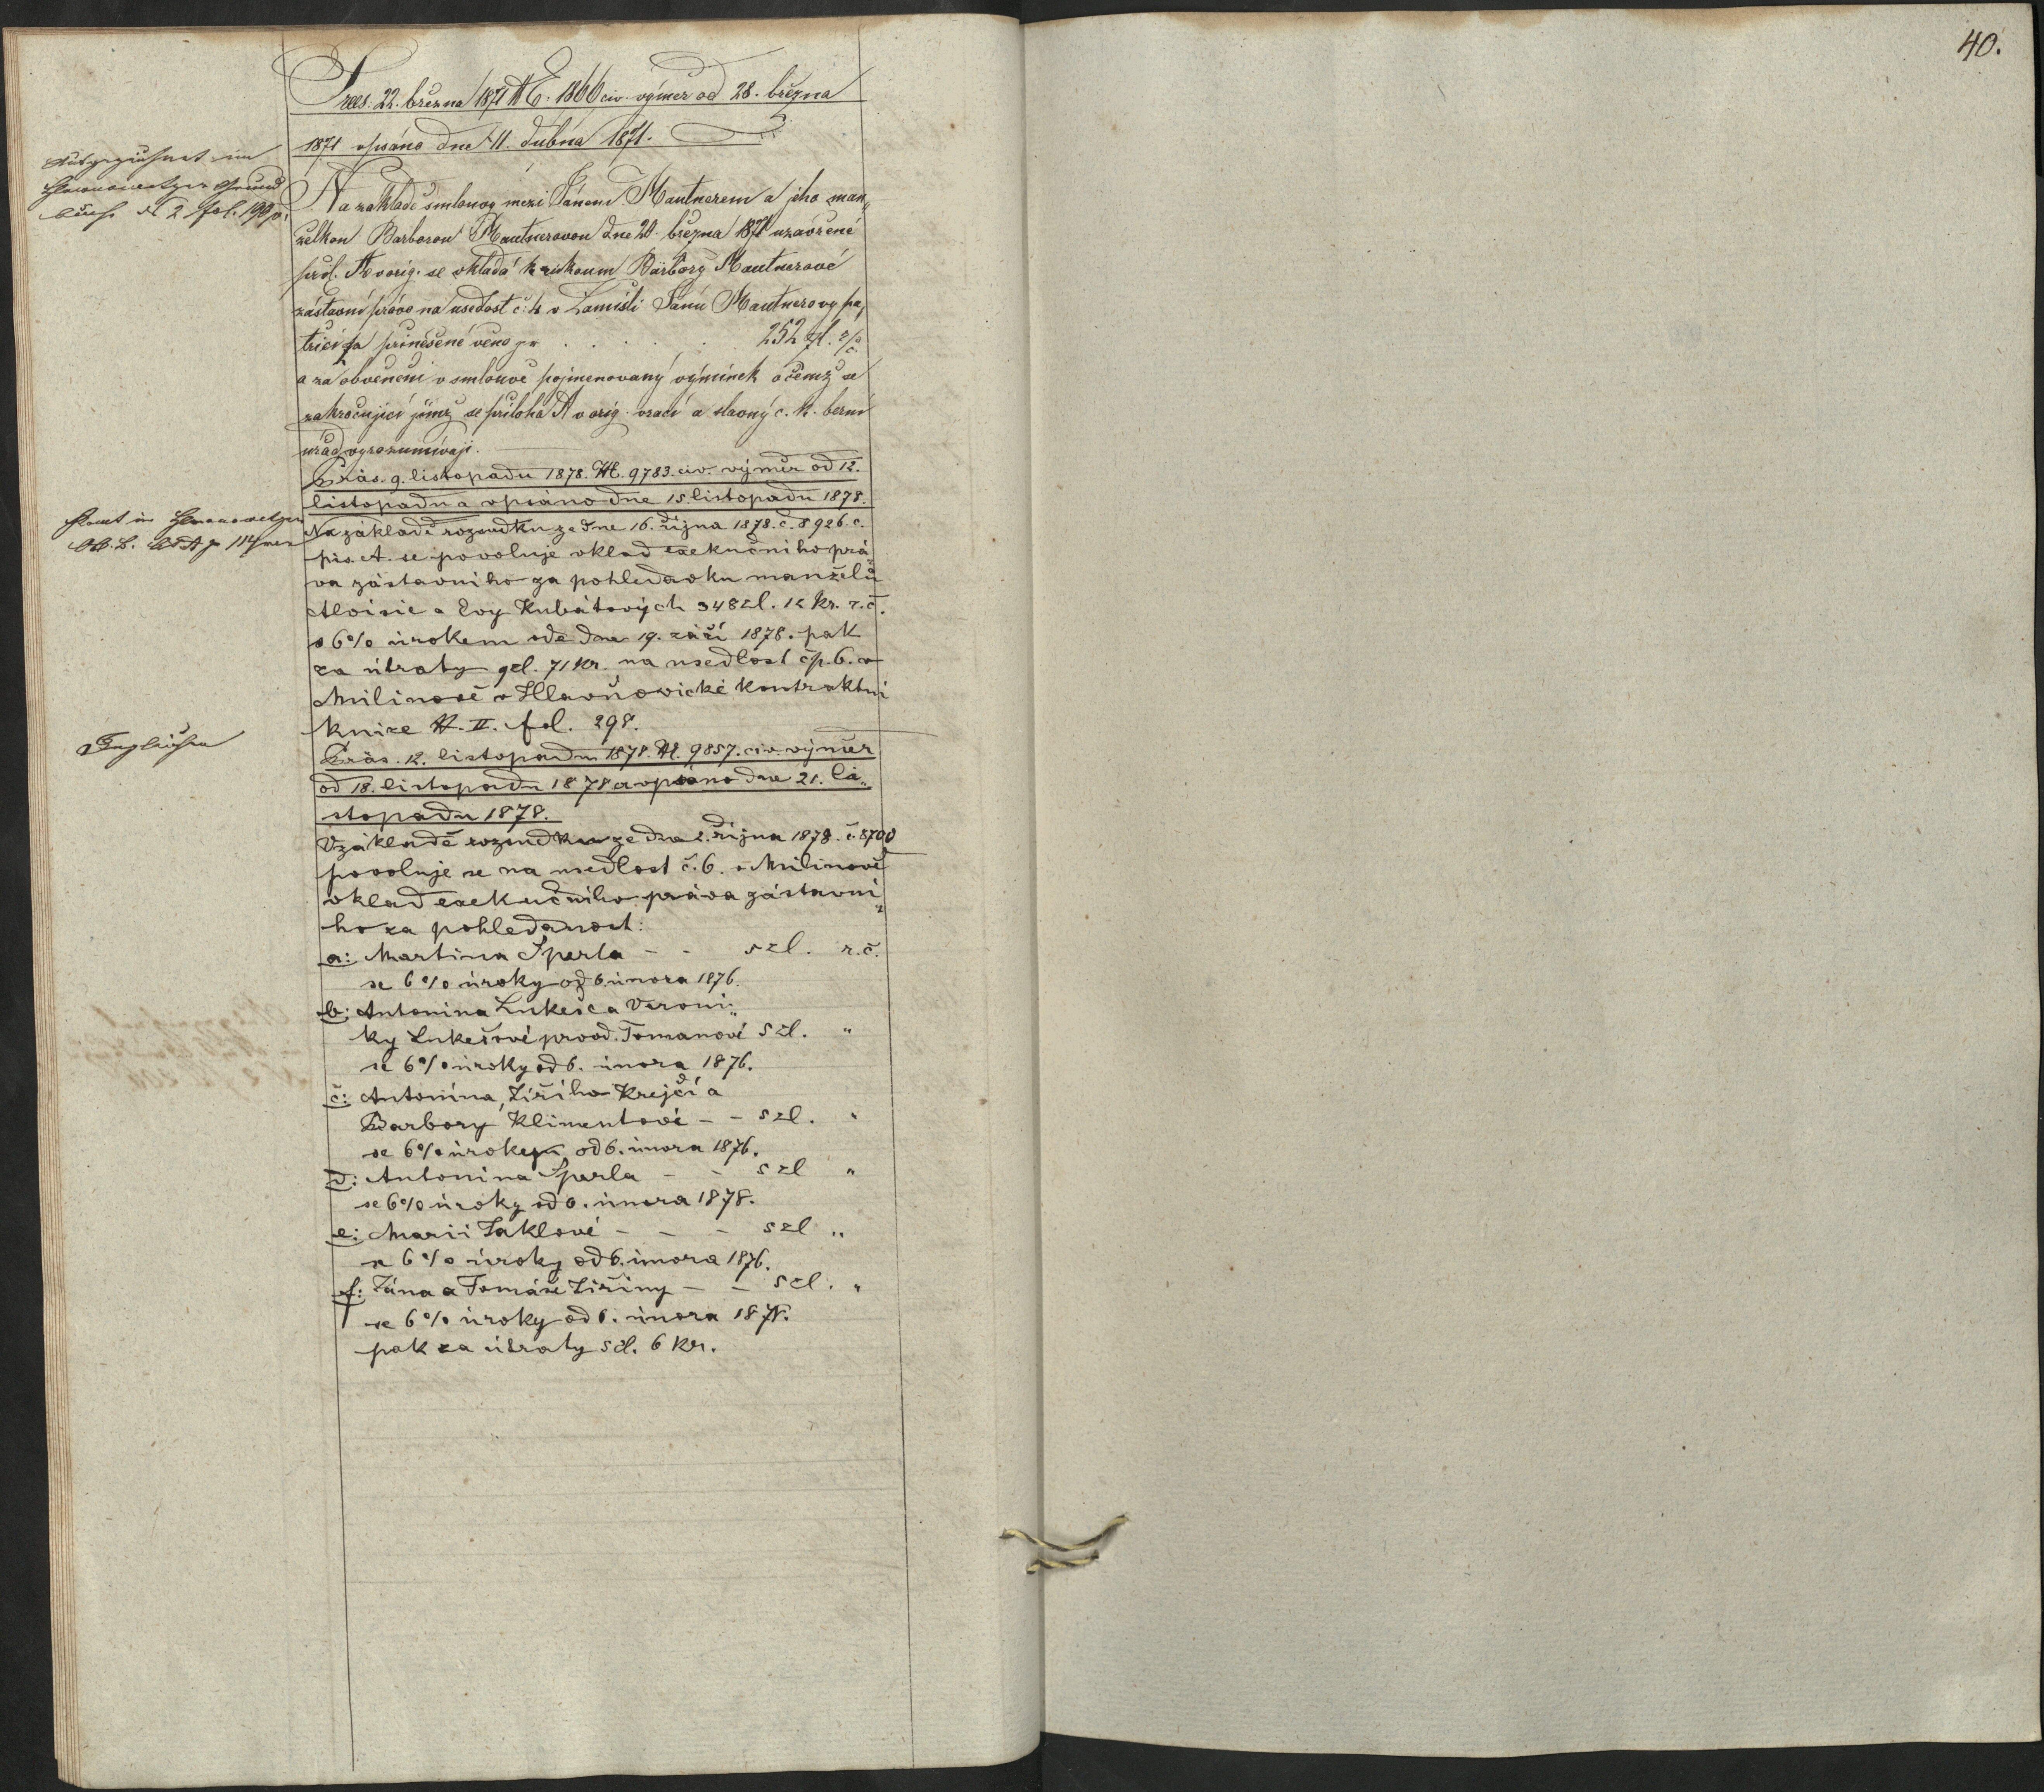 40.
Prees. 22. března 1871 NE. 1866 civ. výměr od 28. března
1871 vpsáno dne 11. dubna 1871.
Na základě smlouvy mezi Jánem Mautnerem a jeho man„
želkou Barborou Mautnerovou dne 20. března 1871 uzavřené
se vkládá k rukoum Barbory Mautnerové
zástavní právo na usedlost č. 4 v Zamišli Jánu Mautnerovy pa„
třící za přinešené věno pr . . . . . 252 zl.
a za obvěnění v smlouvě pojmenovaný výminek o čemž se
zakročující jímž se příloha A v orig. vrací a slavný c. k. berní
úřad vyrozumívají.
Präs. 9. listopadu 1878. N. 9783. civ. výměr od 12.
listopadu a vpsáno dne 15. listopadu 1878.
Na základě rozsudku ze dne 16. října 1878. č. 8926. c.
pís. A. se povoluje vklad exekučního prá„
va zástavního za pohledavku manželů
Aloisie a Evy Kubátových 348 zl. 12 kr. r. č.
s 6% úrokem ode dne 19. září 1878. pak
za útraty 9 zl. 71 kr. na usedlost čp. 6. v
Milinově v Hlavňovické kontraktní
knize N. II. fol. 298.
Präs. 12. listopadu 1878. N. 9857. civ. výměr
od 18. listopadu 1878 a vpsáno dne 21. li„
stopadu 1878.
V základě rozsudku ze dne 2. října 1878. č. 8700
povoluje se na usedlost č. 6. v Milinově
vklad exekučního práva zástavní„
ho za pohledanost:
a: Martina Šperla - - 5 zl. r. č.
se 6% úroky od 6. února 1876.
b: Antonina Lukeše a Veroni„
ky Lukešové prvod. Tomanové 5 zl. "
se 6% úroky od 6. února 1876.
č: Antonína, Jiřího Krejčí a
Barbory Klimentové - - 5 zl. "
se 6% úrokem od 6. února 1876.
d: Antonina Šperla - - 5 zl "
se 6% úroky od 6. února 1878.
e: Marii Jaklové - - - 5 zl "
se 6% úroky od 6. února 1876.
f: Jána a Tomáše Jiřiny - - 5 zl. "
se 6% úroky od 6. února 1878.
pak za útraty 5 zl. 6 kr.